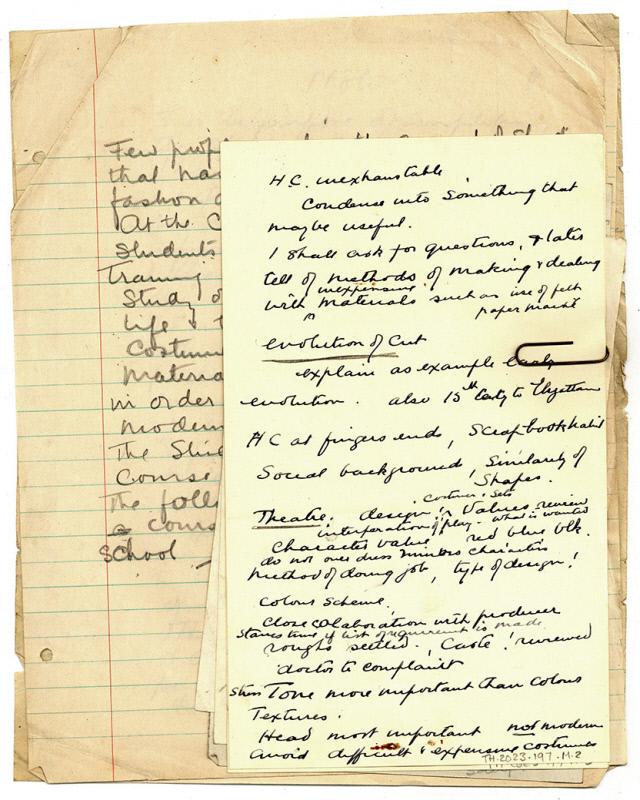 Few
that ha
fashion
At the C
Students
Training
Study of
Life &
Costum
Materia
in order
modern
The Stu
Course
The foll
a cours
School
H.C. inexhaustable
Condense into something that
maybe useful.
I shall ask for questions, & later
tell of methods of making & dealing
inexpensive
with materials such as use of felt
paper maché
evolution of Cut
explain as example
evolution. also 15th Early to
H C at fingers ends, Scrapbook habit
Social background, Similarity of
Shapes.
Costume & Sets
Theatre, design, Values, review
interperation of play. what is wanted
Character value, red blue blk.
do not over dress minor characters
Method of doing job, type of design!
Colour Scheme,
Close colaboration with producer
time if list of requirement is made
roughs settled.
doctor to complaint
Stress Tone more important than Colour
Textures.
Head most important not modern
Avoid difficult & expensive costumes
TH-2023-197-M-2